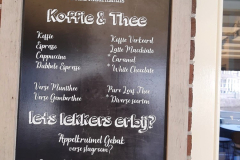 Koffie & Thee
Koffie
Espresso
Cappuccino
Dubbele Espresso
Koffie Verkeerd
Latte Macchiato
* Caramel
* White Chocolate
Verse Muntthee
Verse Gemberthee
Pure Leaf Thee
* Diverse soorten
Iets lekkers erbij?
Appelkruimel Gebak
verse slagroom